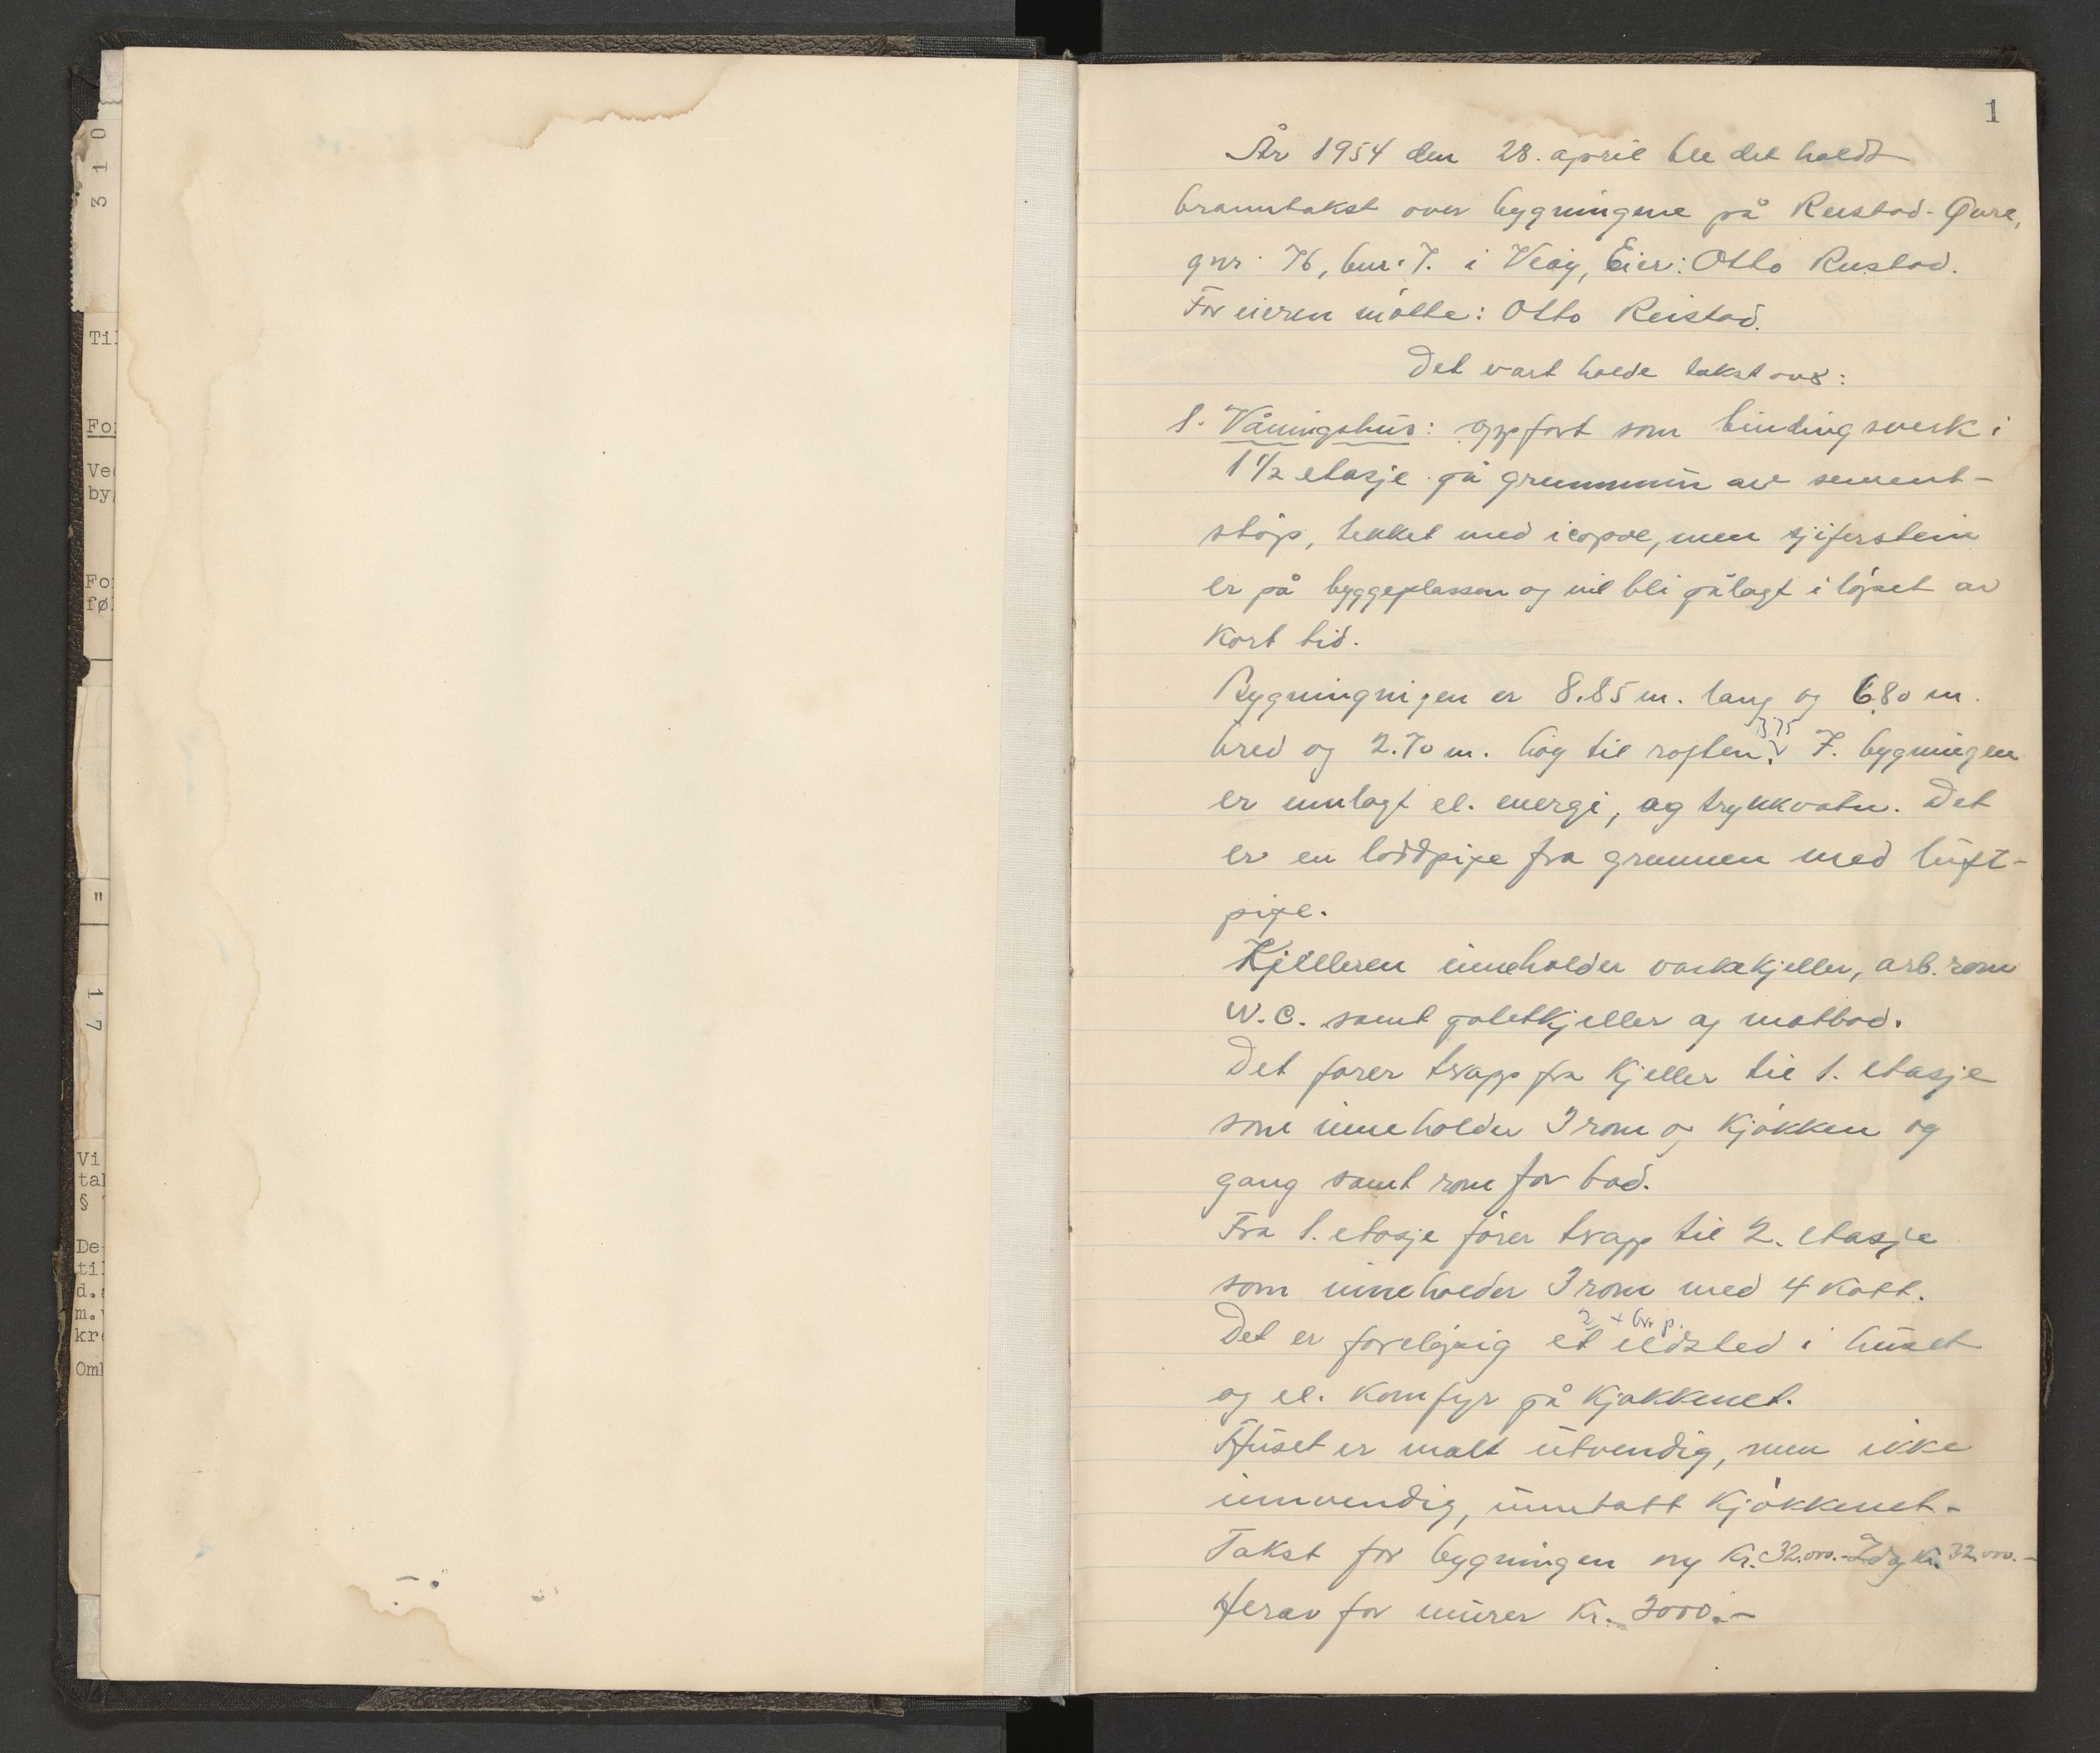 3 1 0
Til
For
Ved
by
For
føl
"
1 7
Vi
tal
§
De
til
d.
m.
kro
Oml
1
År 1954 den 28. april ble det holdt
branntakst over bygningene på Reistad-Øvre,
gnr. 76, bnr. 7. i Veøy, Eier: Otto Reistad.
For eieren møtte: Otto Reistad.
Det vart holde takst over:
1. Våningshus: oppført som bindingsverk i
1 1/2 etasje på grunnmur av sement-
støp, tekket med icopal, men skiferstein
er på byggeplassen og vil bli pålagt i løpet av
kort tid.
Bygningnigen er 8.85 m. lang og 6.80 m.
3.75
bred og 2.70 m. høg til roften. I. bygningen
er innlagt el. energi, og trykkvatn. Det
er en loddpipe fra grunnen med luft-
pipe.
Kjelleren inneholder vaskekjeller, arb. rom
W.C. samt potetkjeller og matbod.
Det fører trapp fra kjeller til 1. etasje
som inneholder 3 rom og kjøkken og
gang samt rom for bad.
Fra 1. etasje fører trapp til 2. etasje
som inneholder 3 rom med 4 kott.
2 + br. p.
Det er foreløpig et ildsted i huset
og el. komfyr på kjøkkenet.
Huset er malt utvendig, men ikke
innvendig, unntatt kjøkkenet.
Takst for bygningen ny Kr. 32.000.- Idag Kr. 32.000.-
Herav for murer Kr. 3000.-